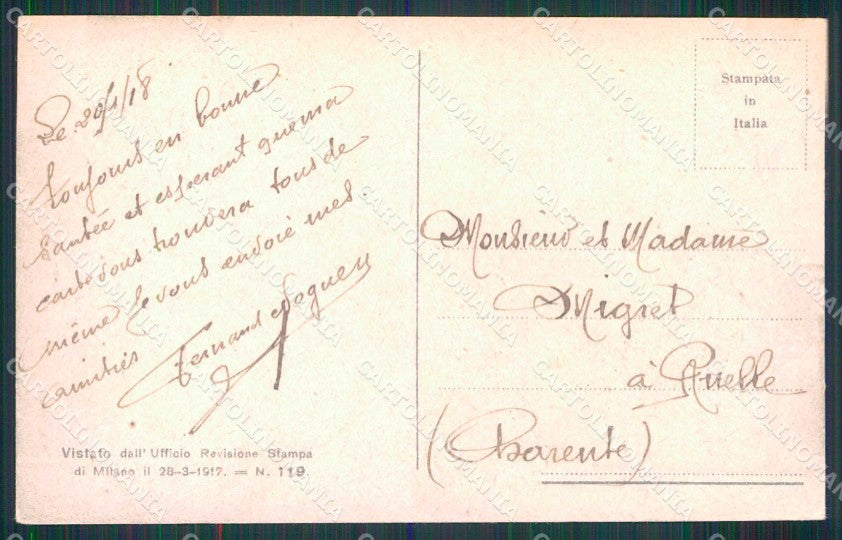 Le 29/1/18
toujours en bonne
santée et esperant que ma
carte vous trouvera tous de
même je vous envoie mes
amitiés Fernand
Vistato dall' Ufficio Revisione Stampa
di Milano il 28-3-1917. = N. 119.
Stampata
in
Italia
Monsieur et Madame
Migret
à Ruelle
(Charente)
CARTOLINOMANIA